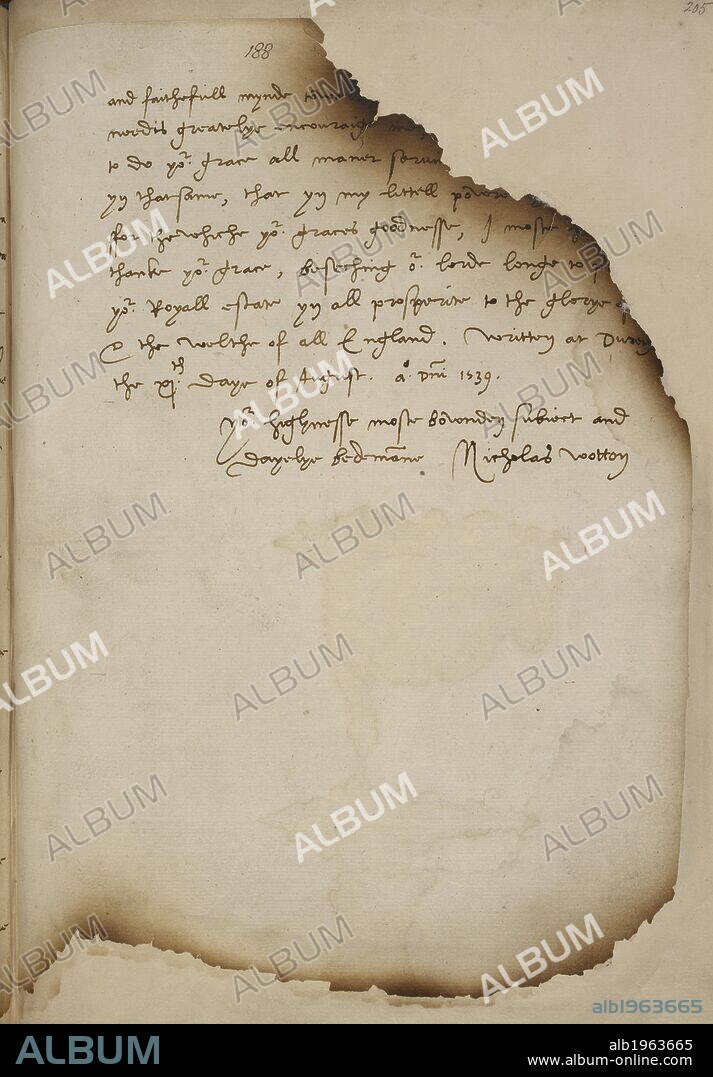 205
188
and faithefull mynde
needis greatelye encouraige
to do yor. grace all maner
yn thatsame, that yn my littell
ffor thewhiche yor. graces goodnesse, I moste
thanke yor. grace, beseching or. lorde longe to
yor. Royall estate yn all prosperite to the glorye
& the welthe of all England. Written at
the xjth. daye of August. ao. Dni 1539.
yor. highnesse moste bownden subiect and
dayelye bedemanne Nicholas wotton
ALBUM
alb1963665
ALBUM
alb1963665
www.album-online.com